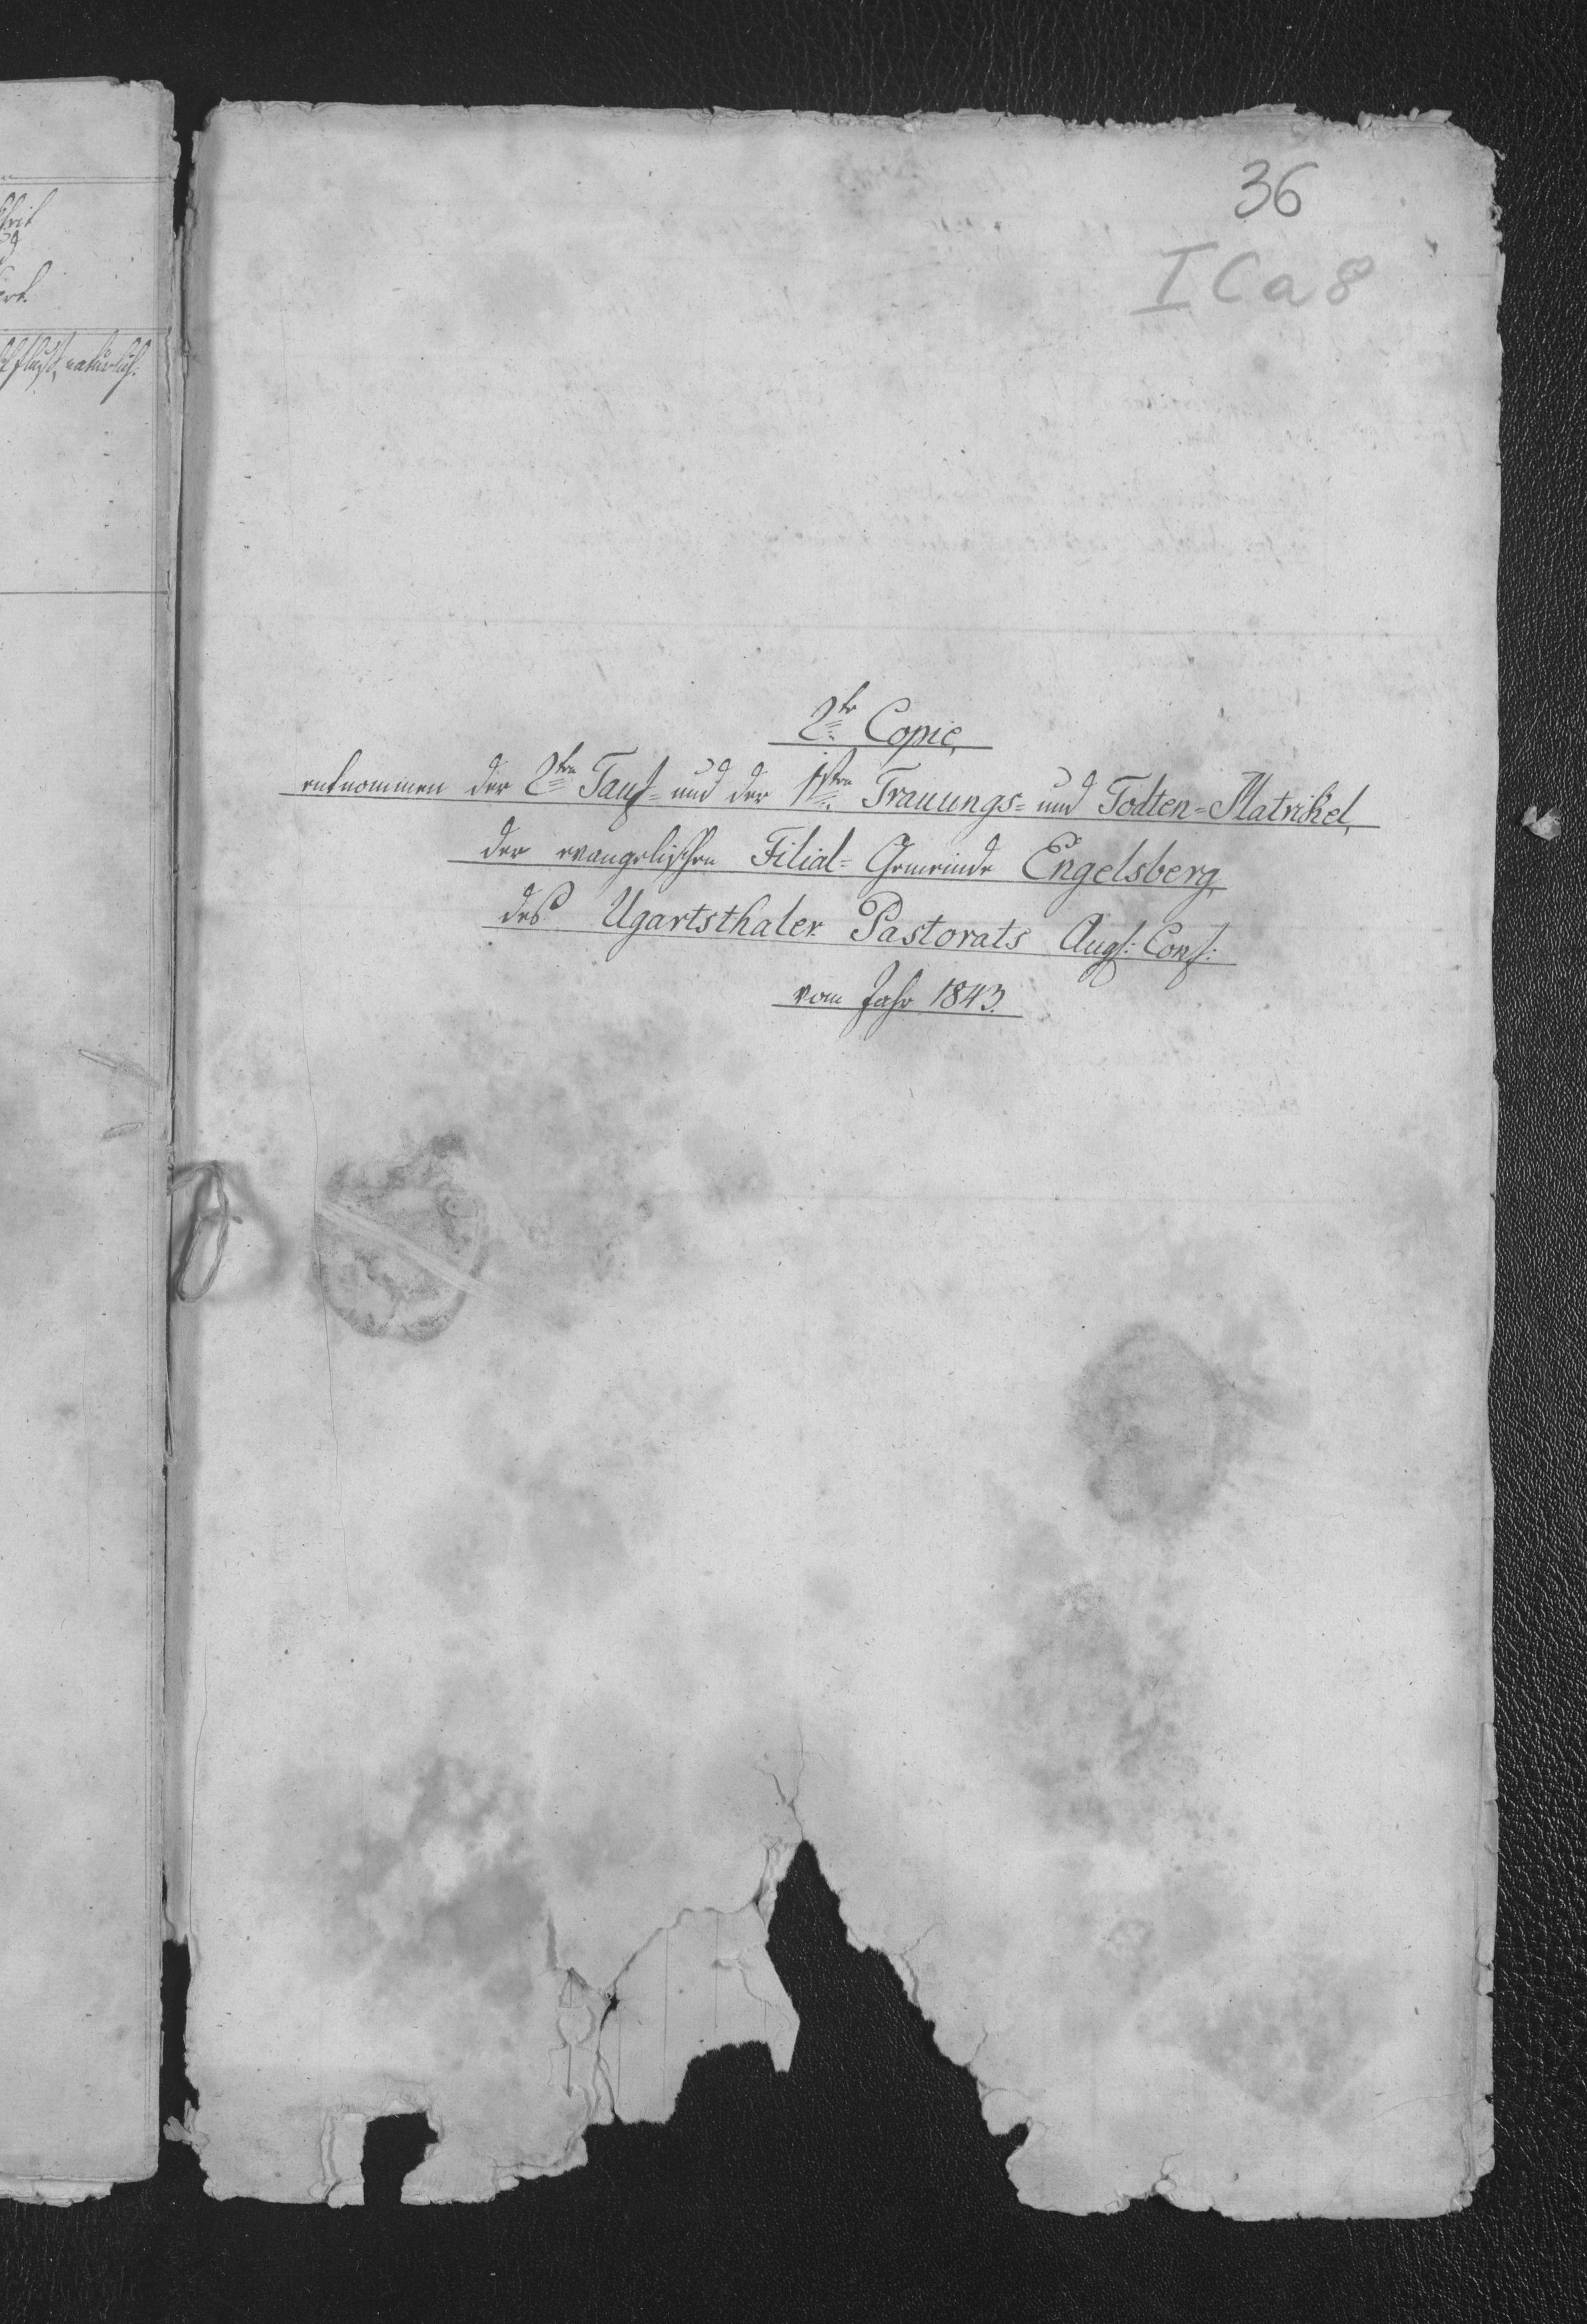 36
I C a 8
2te Copie,
entnommen der 2ten Tauf- und der 1sten Trauungs- und Todten-Matrikel,
der evangelischen Filial-Gemeinde Engelsberg,
des Ugartsthaler Pastorats Augs: Conf:
vom Jahr 1843.
natürlich.